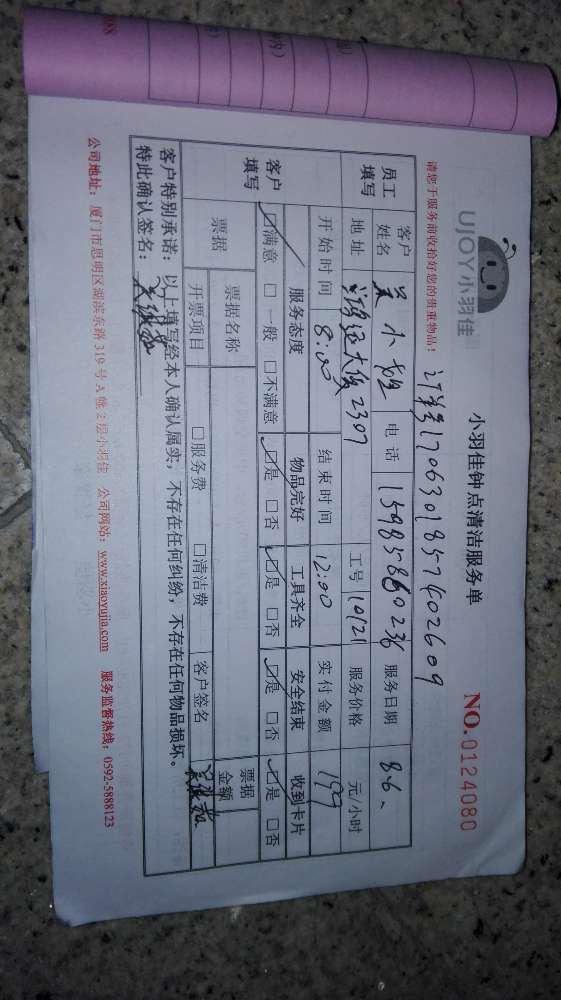 UJOY小羽佳
小羽佳钟点清洁服务单
NO.0124080
请您于服务前收拾好您的贵重物品！
订单1706301857402609
员工填写 客户姓名 吴小姐 电话 15985860236 服务日期 8.6、
地址 鸿运大厦2307 工号 10121 服务价格 元/小时
开始时间 8:00 结束时间 12:00 实付金额 199
客户填写 服务态度 物品完好 工具齐全 安全结束 收到卡片
☑满意 □一般 □不满意 ☑是 □否 ☑是 □否 ☑是 □否 ☑是 □否
票据 票据名称 票据金额
开票项目 □服务费 □清洁费 客户签名
客户特别承诺：以上填写经本人确认属实，不存在任何纠纷，不存在任何物品损坏。
特此确认签名：
公司地址：厦门市思明区湖滨东路319号A幢2层小羽佳 公司网站：www.xiaoyujia.com 服务监督热线：0592-5888123